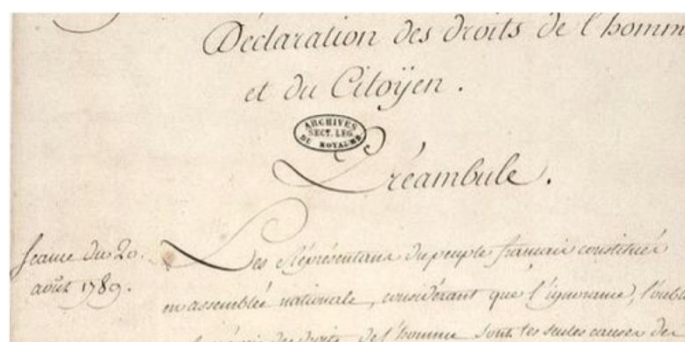 Déclaration des droits de l'homm
et du Citoÿen.
ARCHIVES
SECT. LEG
DU ROYAUME
Préambule.
Seance du 20.
août 1789.
Les Réprésentans du peuple francais constitués
en assemblée nationale, considérant que l'ignorance, l'oubli
le mépris des droits de l'homme sont les seules causes des